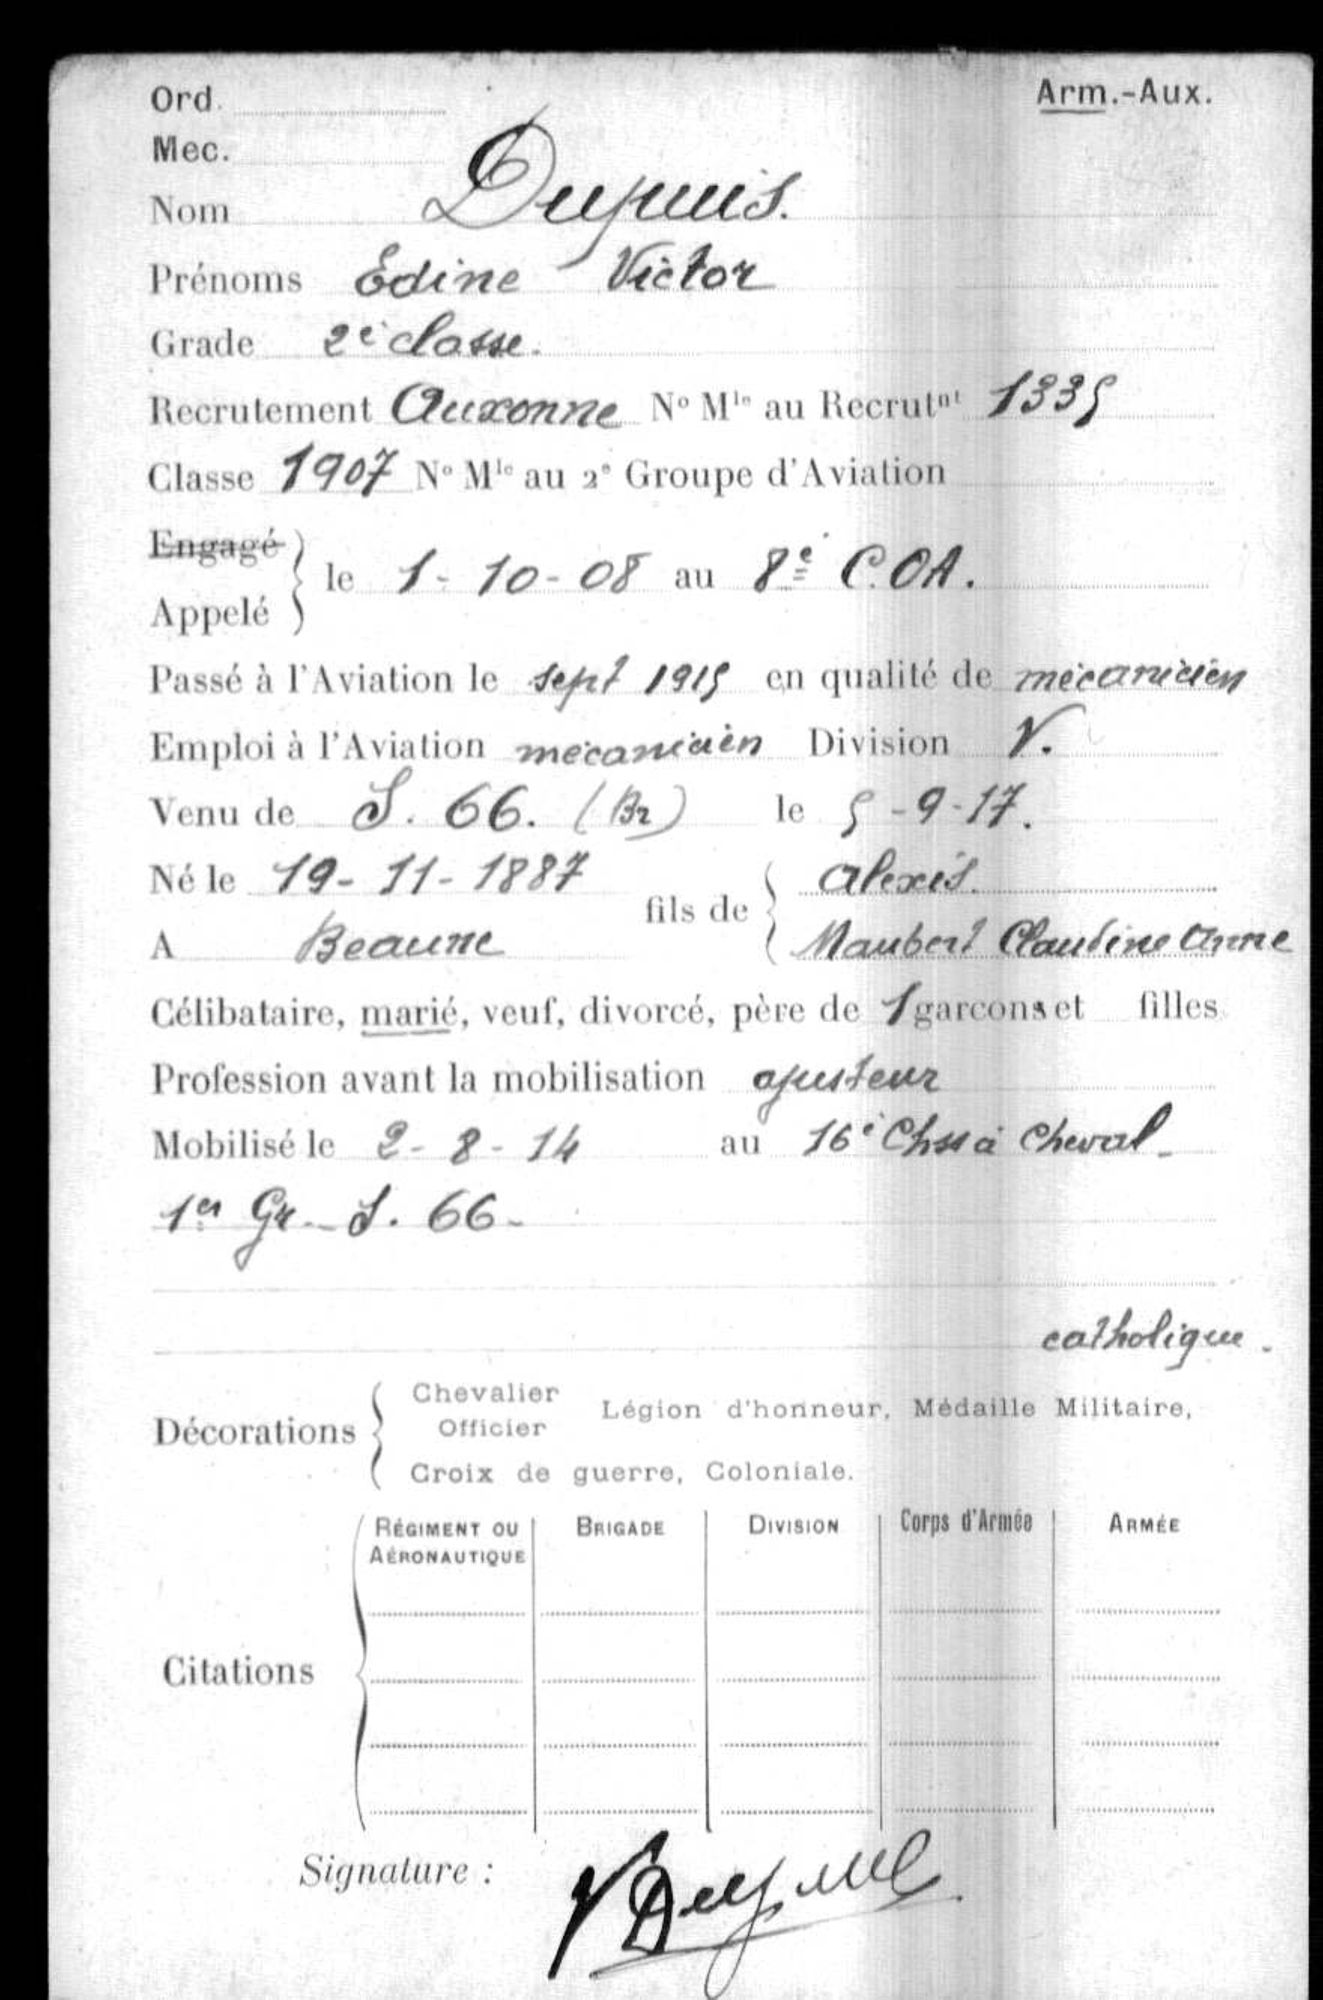 Ord.
Arm.-Aux.
Mec.
Nom Dupuis.
Prénoms Edine Victor
Grade 2e classe.
Recrutement Auxonne No Mle au Recrutnt 1335
Classe 1907 No Mle au 2e Groupe d'Aviation
Engagé
le 1-10-08 au 8e C.O.A.
Appelé
Passé à l'Aviation le sept 1915 en qualité de mécanicien
Emploi à l'Aviation mécanicien Division V.
Venu de S. 66. (Br) le 5-9-17.
Né le 19-11-1887
fils de
Alexis.
A Beaune
Maubert Claudine Anne
Célibataire, marié, veuf, divorcé, père de 1 garçons et filles
Profession avant la mobilisation ajusteur
Mobilisé le 2-8-14 au 16e Chss à Cheval
1er Gr. S. 66-
catholique.
Décorations
Chevalier
Officier
Légion d'honneur, Médaille Militaire,
Croix de guerre, Coloniale.
Citations
RÉGIMENT OU AÉRONAUTIQUE
BRIGADE
DIVISION
Corps d'Armée
ARMÉE
Signature :
V Dupuis